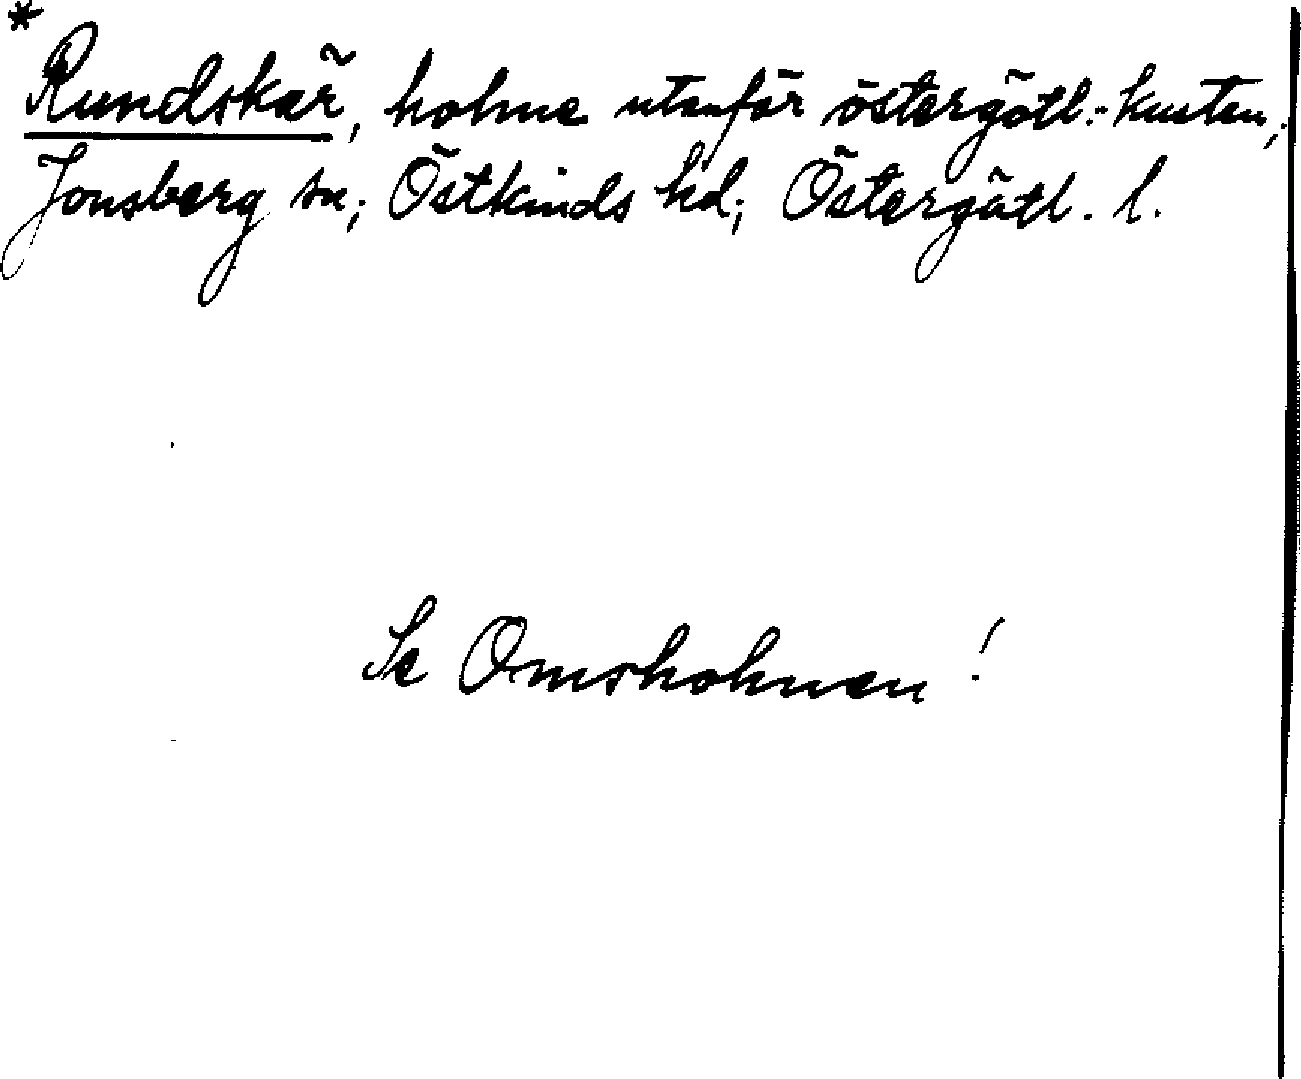 *
Rundskär, holme utanför östergötl.-kusten;
Jonsberg sn; Östkinds hd; Östergötl. l.
Se Omsholmen!